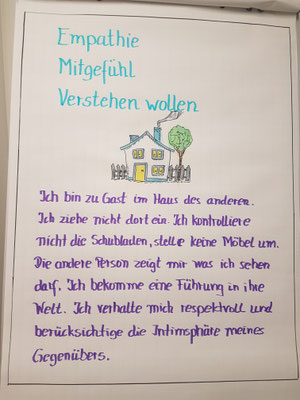 Empathie
Mitgefühl
Verstehen wollen
Ich bin zu Gast im Haus des anderen.
Ich ziehe nicht dort ein. Ich kontrolliere
nicht die Schubladen, stelle keine Möbel um.
Die andere Person zeigt mir was ich sehen
darf. Ich bekomme eine Führung in ihre
Welt. Ich verhalte mich respektvoll und
berücksichtige die Intimsphäre meines
Gegenübers.